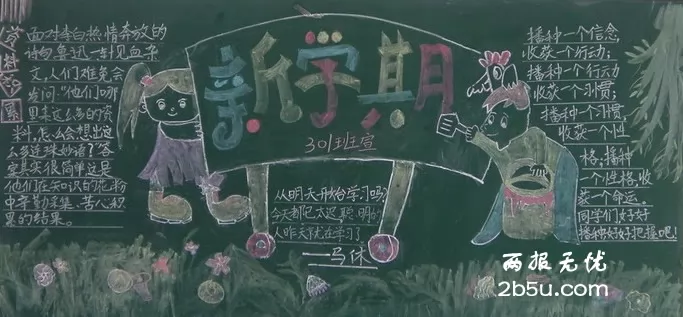 面对李白热情奔放的
诗句鲁迅一针见血杂
文,人们难免会
发问:"他们哪
里来这么多的资
料,怎么会想出这
么多连珠妙语?"答
案其实很简单这是
他们在知识的花粉
中辛勤采集、苦心积
累的结果。
新学期
301班宣
从明天开始学习吗?
今天都已太迟,聪明的
人昨天就在学习了
——马休
播种一个信念,
收获一个行动;
播种一个行动
收获一个习惯;
播种一个习惯,
收获一个性
格;播种
一个性格,收
获一个命运。
同学们好好
播种好好把握吧!
两报无忧
2b5u.com